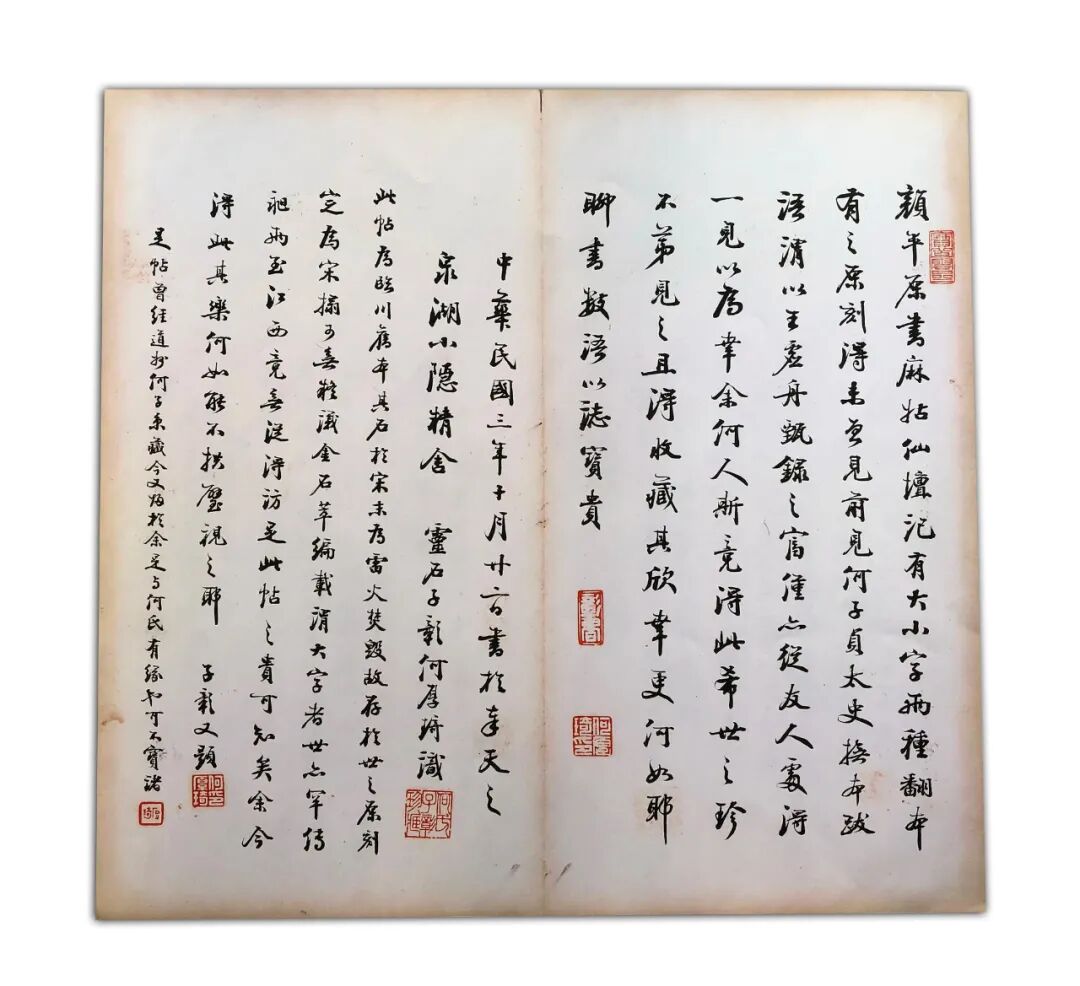 顏平原書麻姑仙壇記有大小字兩種翻本
有之原刻得未曾見前見何子貞太史橅本跋
語謂以王虛舟甄錄之富僅亦從友人處得
一見以為幸余何人斯竟得此希世之珍
不第見之且得收藏其欣幸更何如耶
聊書數語以誌寶貴
中華民國三年十月廿六日書於奉天之
泉湖小隱精舍 靈石子彰何厚琦識
此帖為臨川舊本其石於宋末為雷火焚毀故存於世之原刻
定為宋搨可無疑議金石萃編載謂大字者世亦罕傳
祂兩至江西竟無從得訪足此帖之貴可知矣余今
得此其樂何如能不拱璧視之耶 子彰又題
是帖曾經道州何子貞藏今又歸於余是與何氏有緣也可不寶諸
何厚琦印
何氏子彰珍藏